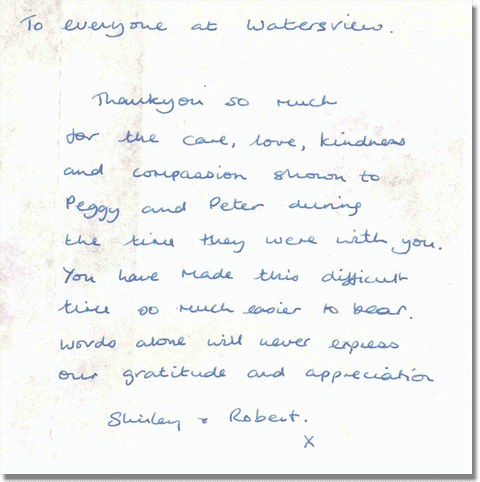 To everyone at Watersview.
Thankyou so much
for the care, love, kindness
and compassion shown to
Peggy and Peter during
the time they were with you.
You have made this difficult
time so much easier to bear.
Words alone will never express
our gratitude and appreciation
Shirley & Robert.
X